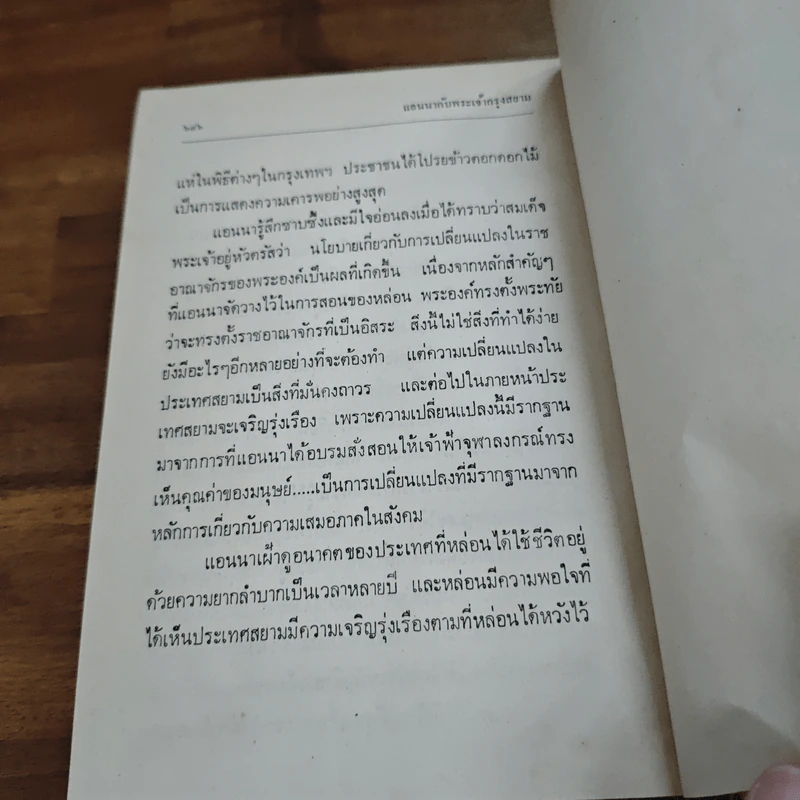 แอนนากับพระเจ้ากรุงสยาม
แห่ในพิธีต่างๆในกรุงเทพฯ ประชาชนได้โปรยข้าวตอกดอกไม้
เป็นการแสดงความเคารพอย่างสูงสุด
แอนนารู้สึกซาบซึ้งและมีใจอ่อนลงเมื่อได้ทราบว่าสมเด็จ
พระเจ้าอยู่หัวตรัสว่า นโยบายเกี่ยวกับการเปลี่ยนแปลงในราช
อาณาจักรของพระองค์เป็นผลที่เกิดขึ้น เนื่องจากหลักสำคัญๆ
ที่แอนนาจัดวางไว้ในการสอนของหล่อน พระองค์ทรงตั้งพระทัย
ว่าจะทรงตั้งราชอาณาจักรที่เป็นอิสระ สิ่งนี้ไม่ใช่สิ่งที่ทำได้ง่าย
ยังมีอะไรๆอีกหลายอย่างที่จะต้องทำ แต่ความเปลี่ยนแปลงใน
ประเทศสยามเป็นสิ่งที่มั่นคงถาวร และต่อไปในภายหน้าประ
เทศสยามจะเจริญรุ่งเรือง เพราะความเปลี่ยนแปลงนี้มีรากฐาน
มาจากการที่แอนนาได้อบรมสั่งสอนให้เจ้าฟ้าจุฬาลงกรณ์ทรง
เห็นคุณค่าของมนุษย์.....เป็นการเปลี่ยนแปลงที่มีรากฐานมาจาก
หลักการเกี่ยวกับความเสมอภาคในสังคม
แอนนาเฝ้าดูอนาคตของประเทศที่หล่อนได้ใช้ชีวิตอยู่
ด้วยความยากลำบากเป็นเวลาหลายปี และหล่อนมีความพอใจที่
ได้เห็นประเทศสยามมีความเจริญรุ่งเรืองตามที่หล่อนได้หวังไว้